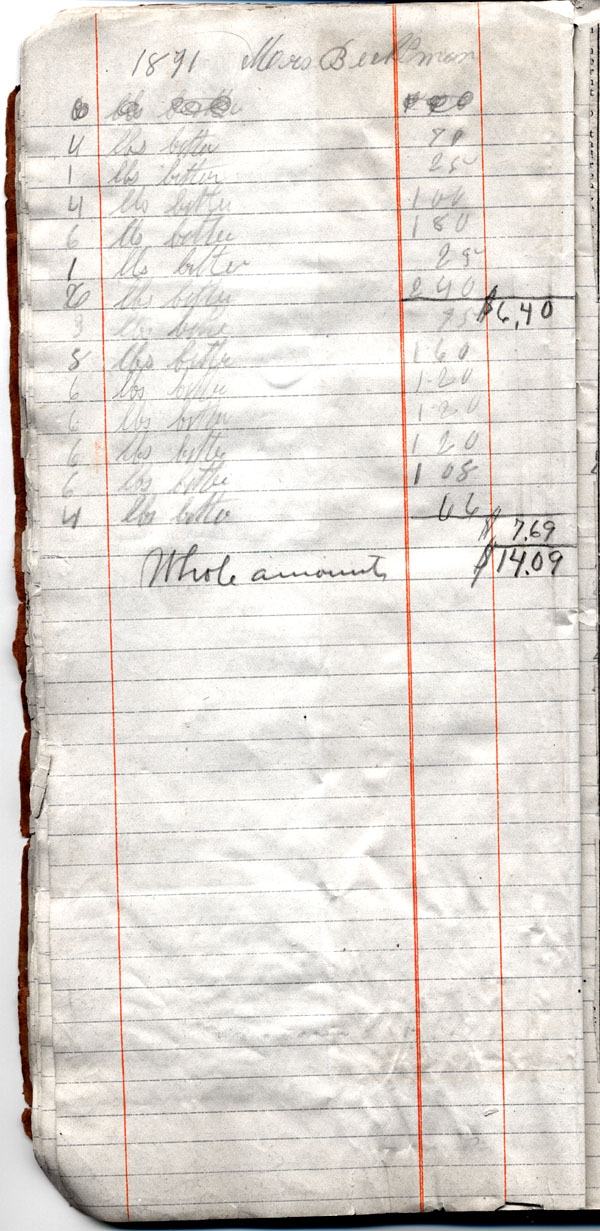 1891 Mors Beckman
4 lbs better 70
1 lbs better 25
4 lbs better 100
6 lbs better 180
1 lbs better 25
8 lbs better 240
$6,40
3 lbs 75
8 lbs better 160
6 lbs better 1-20
6 lbs better 1-20
6 lbs better 120
6 lbs better 1 08
4 lbs better 66
$ 7.69
Whole amounts $14.09